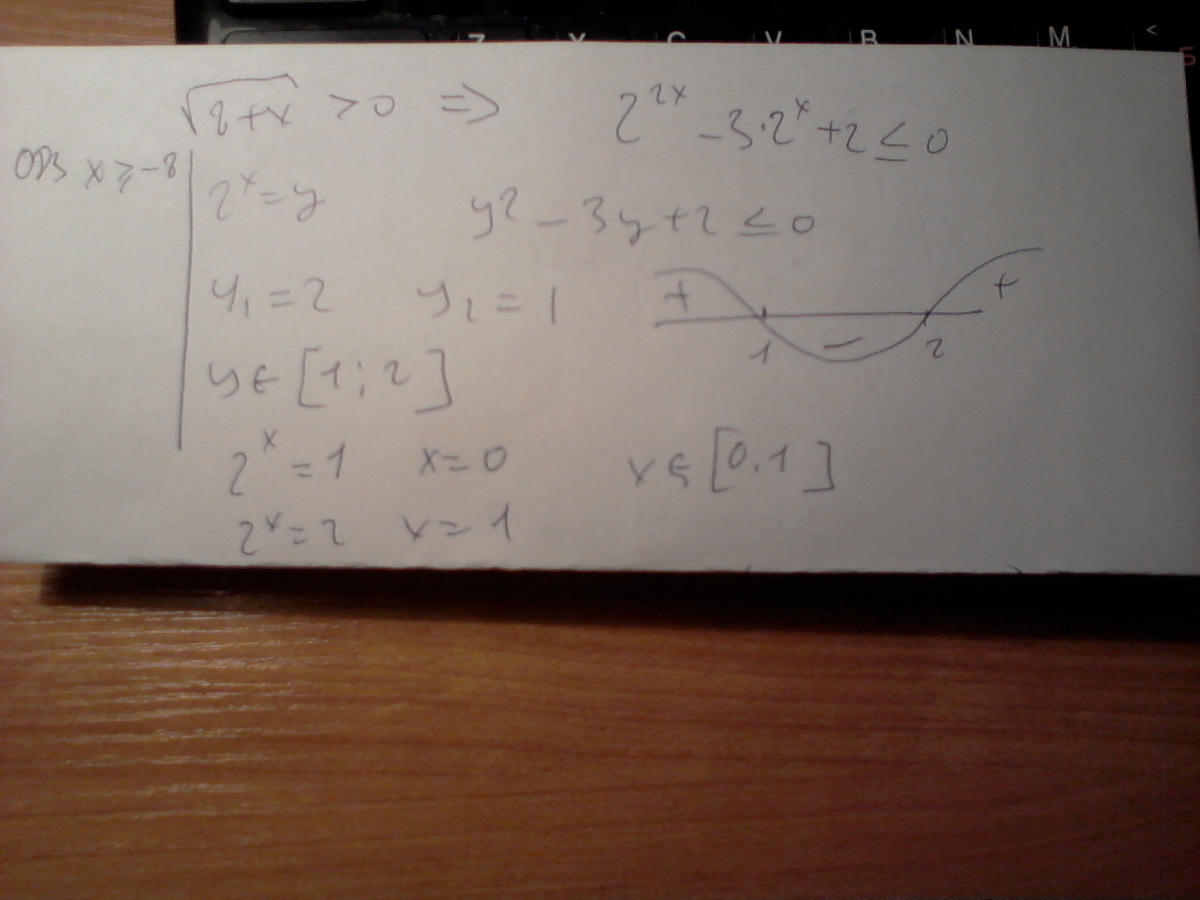 Z X C V B N M <
Б
√8+x > 0 ⇒ 2^2x - 3·2^x + 2 ≤ 0
ОДЗ x ≥ -8
2^x = y y² - 3y + 2 ≤ 0
y₁ = 2 y₂ = 1
+ - +
1 2
y ∈ [1; 2]
2^x = 1 x = 0 x ∈ [0.1]
2^x = 2 x = 1